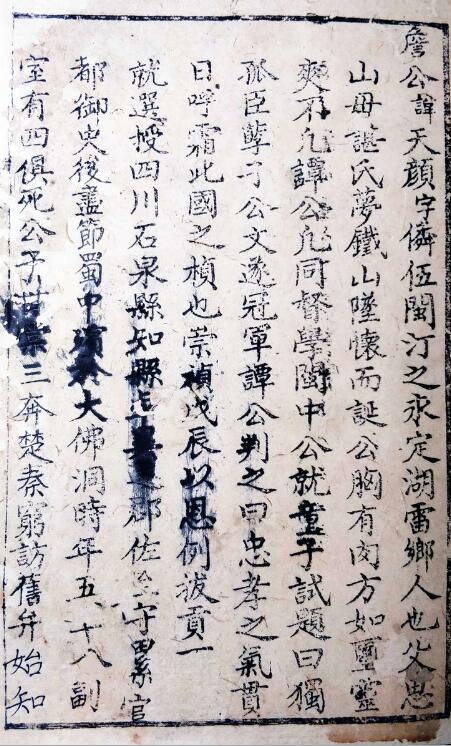 詹公諱天顏字僯伍閩汀之永定湖雷鄉人也父思
山母諶氏夢鐵山墜懷而誕公胸有肉方如璽靈
爽不凢譚公凢同督學閩中公就童子試題曰獨
孤臣孽子公文遂冠軍譚公判之曰忠孝之氣貫
日呼霜此國之楨也崇禎戊辰以恩例拔貢一
就選授四川石泉縣知縣郡佐至守累官
都御史後盡節蜀中大佛洞時年五十八副
室有四俱死公子三奔楚秦窮訪舊弁始知